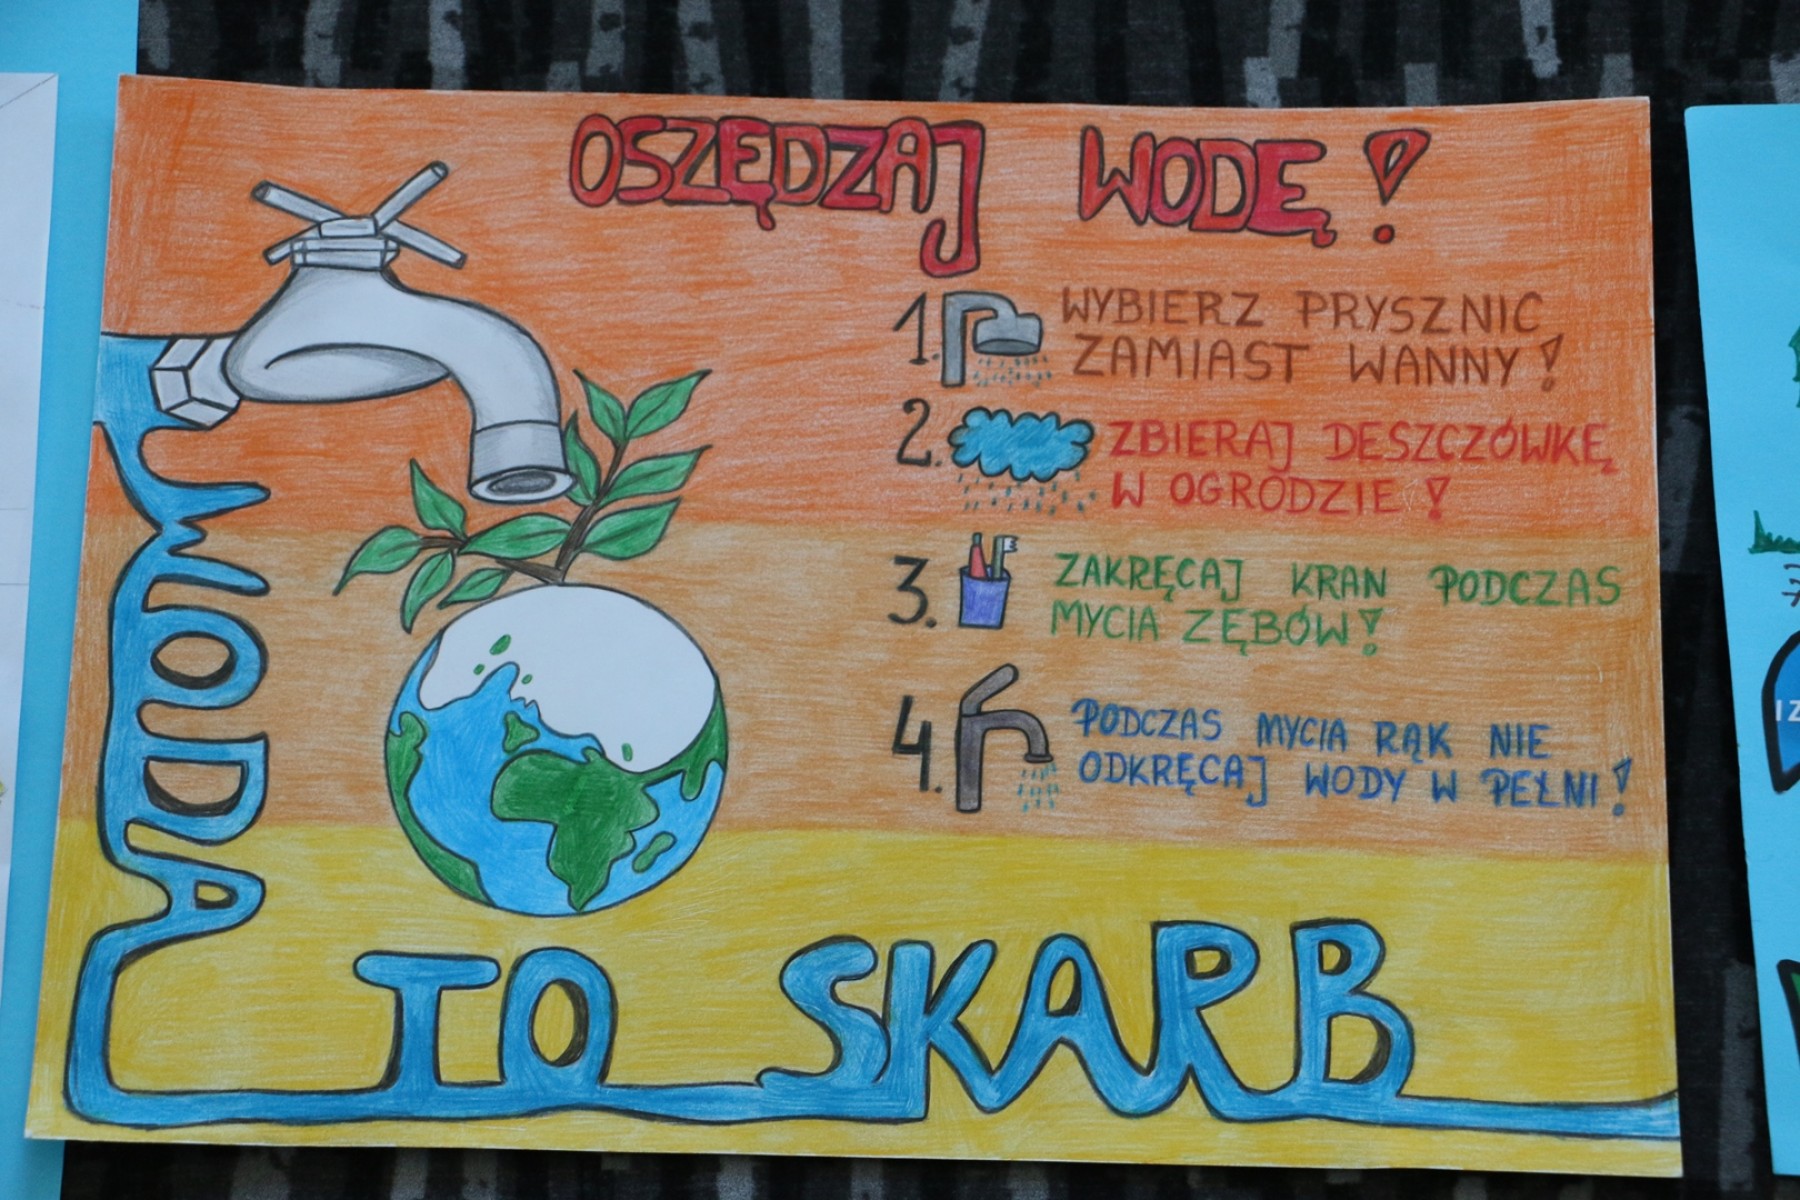 OSZĘDZAJ WODĘ!
1. WYBIERZ PRYSZNIC
ZAMIAST WANNY!
2. ZBIERAJ DESZCZÓWKĘ
W OGRODZIE!
3. ZAKRĘCAJ KRAN PODCZAS
MYCIA ZĘBÓW!
4. PODCZAS MYCIA RĄK NIE
ODKRĘCAJ WODY W PEŁNI!
WODA
TO SKARB